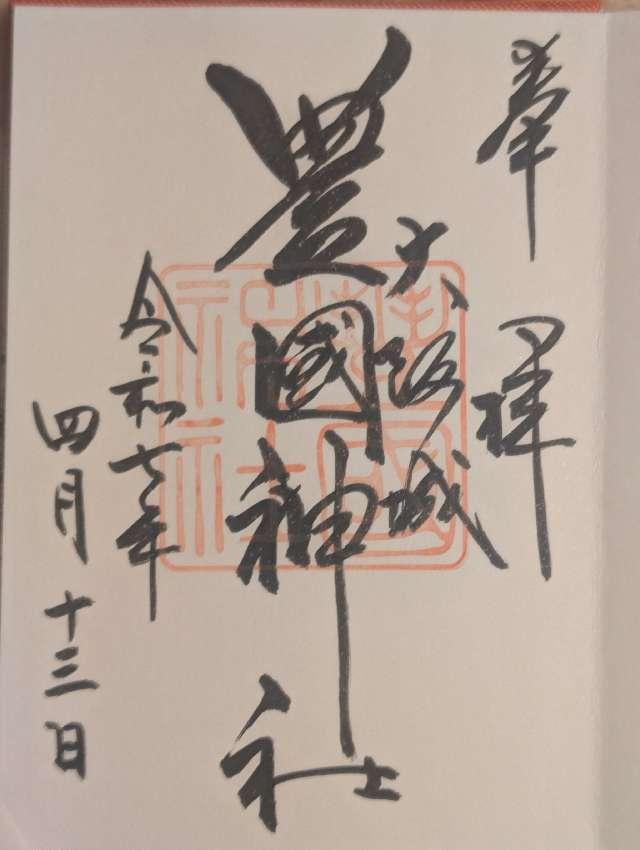 奉拝
大阪城
豊國神社
令和七年
四月十三日
豊國神社